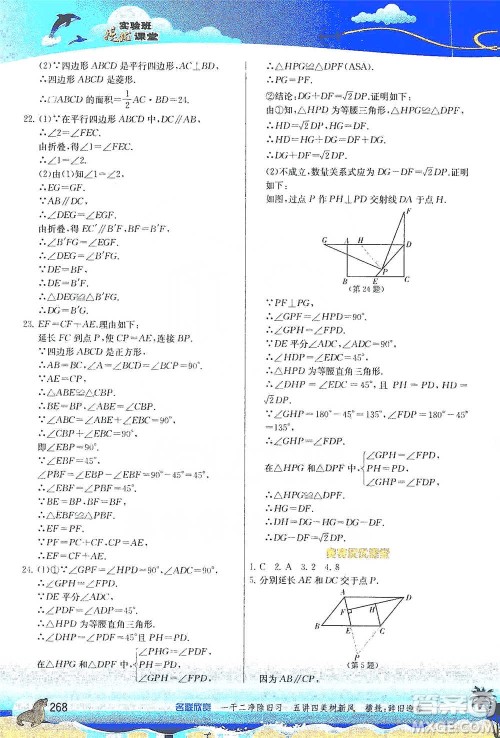 实验班
提优课堂
(2)∵四边形 ABCD 是平行四边形，AC⊥BD，
∴四边形 ABCD 是菱形.
∴□ABCD 的面积=1/2 AC·BD=24.
22. (1)∵在平行四边形 ABCD 中，DC∥AB，
∴∠2=∠FEC.
由折叠，得∠1=∠FEC.
∴∠1=∠2.
(2)由(1)知∠1=∠2，
∴EG=GF.
∵AB∥DC，
∴∠DEG=∠EGF.
由折叠，得 EC′∥B′F，
∴∠B′FG=∠EGF.
∴∠DEG=∠B′FG.
∵DE=B′F，
∴△DEG≌△B′FG.
∴DG=B′G.
23. EF=CF+AE. 理由如下：
延长 FC 到点 P，使 PC=AE，连接 BP.
∵四边形 ABCD 是正方形，
∴AB=BC，∠A=∠BCD=∠BCP=90°.
∵CP=AE，
∴△ABE≌△CBP.
∴BE=BP，∠ABE=∠CBP.
∵∠ABC=90°，
∴∠CBP+∠EBC=90°，
即∠EBP=90°.
∵∠EBF=45°，
∴∠PBF=∠EBP-∠EBF=90°-45°=45°.
∴∠EBF=∠PBF=45°.
∵BF=BF，
∴△EBF≌△PBF.
∴EF=PF=CF+CP=CF+AE.
24. (1)①∵∠GPF=∠HPD=90°，
∴∠GPH=∠FPD.
∵DE 平分∠ADC，
∴∠PDF=∠ADP=45°.
∴△HPD 为等腰直角三角形.
∴∠DHP=∠PDF=45°.
在△HPG 和△DPF 中，
∠PHG=∠PDF，
PH=PD，
∠GPH=∠FPD，
∴△HPG≌△DPF (ASA).
∴PG=PF.
②结论：DG+DF=√2DP. 证明如下：
由①知，△HPD 为等腰直角三角形，△HPG≌△DPF，
∴HD=√2DP，HG=DF.
∴HD=HG+DG=DF+DG.
∴DG+DF=√2DP.
(2)不成立，数量关系式应为 DG-DF=√2DP. 证明如下：
如图，过点 P 作 PH⊥PD 交射线 DA 于点 H.
G A H D
P
B E C
F
(第 24 题)
∵PF⊥PG，
∴∠GPF=∠HPD=90°.
∴∠GPH=∠FPD.
∵DE 平分∠ADC，
∴∠HDP=∠EDC=45°.
∴△HPD 为等腰直角三角形.
∴∠DHP=∠EDC=45°，且 PH=PD，HD=√2DP.
∴∠GHP=180°-45°=135°，∠FDP=180°-45°=135°.
∴∠GHP=∠FDP.
在△HPG 和△DPF 中，
∠GPH=∠FPD，
PH=PD，
∠GHP=∠FDP，
∴△HPG≌△DPF.
∴HG=DF.
∴DG-DF=DG-HG=DH=√2DP.
1. C 2. A 3. 2 4. 8
5. 分别延长 AE 和 DC 交于点 P，
A D
F H
B E C
P
(第 5 题)
因为 AB∥CD，
268
名联欣赏 一干二净除旧习 五讲四美树新风